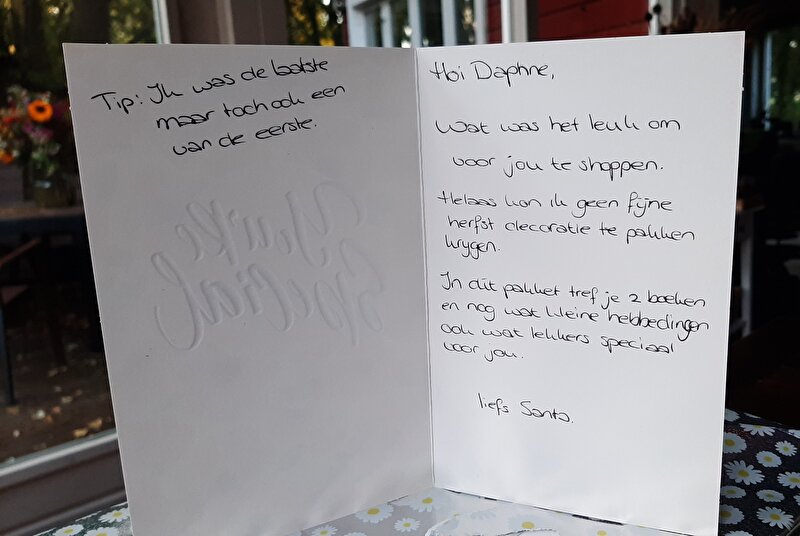 Tip: Ik was de laatste
maar toch ook een
van de eerste.
You're
Special
Hoi Daphne,
Wat was het leuk om
voor jou te shoppen.
Helaas kon ik geen fijne
herfst decoratie te pakken
krygen.
In dit pakket tref je 2 boeken
en nog wat kleine hebbedingen
ook wat lekkers speciaal
voor jou.
liefs Santa.